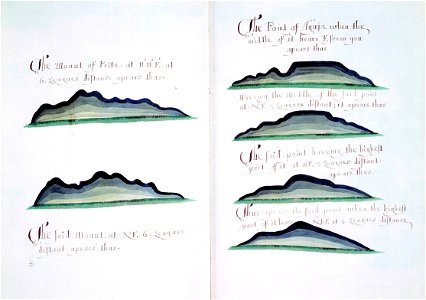 The Mount of Paita: at N N E. at
6 Leagues distance apears thus.
The said Mount. at N.E. 6 Leagues
distant apears thus.
The Point of Aguja when the
middle of it bears E. from you
apears thus
Haveing the middle of the said point
at N.E. 5 Leagues distant; it apears thus
The said point haveing the highest
part of it at S E. 5 Leagues distant
apears thus
Thus apears the said point when the highest
part of it bears 4 Leagues distance